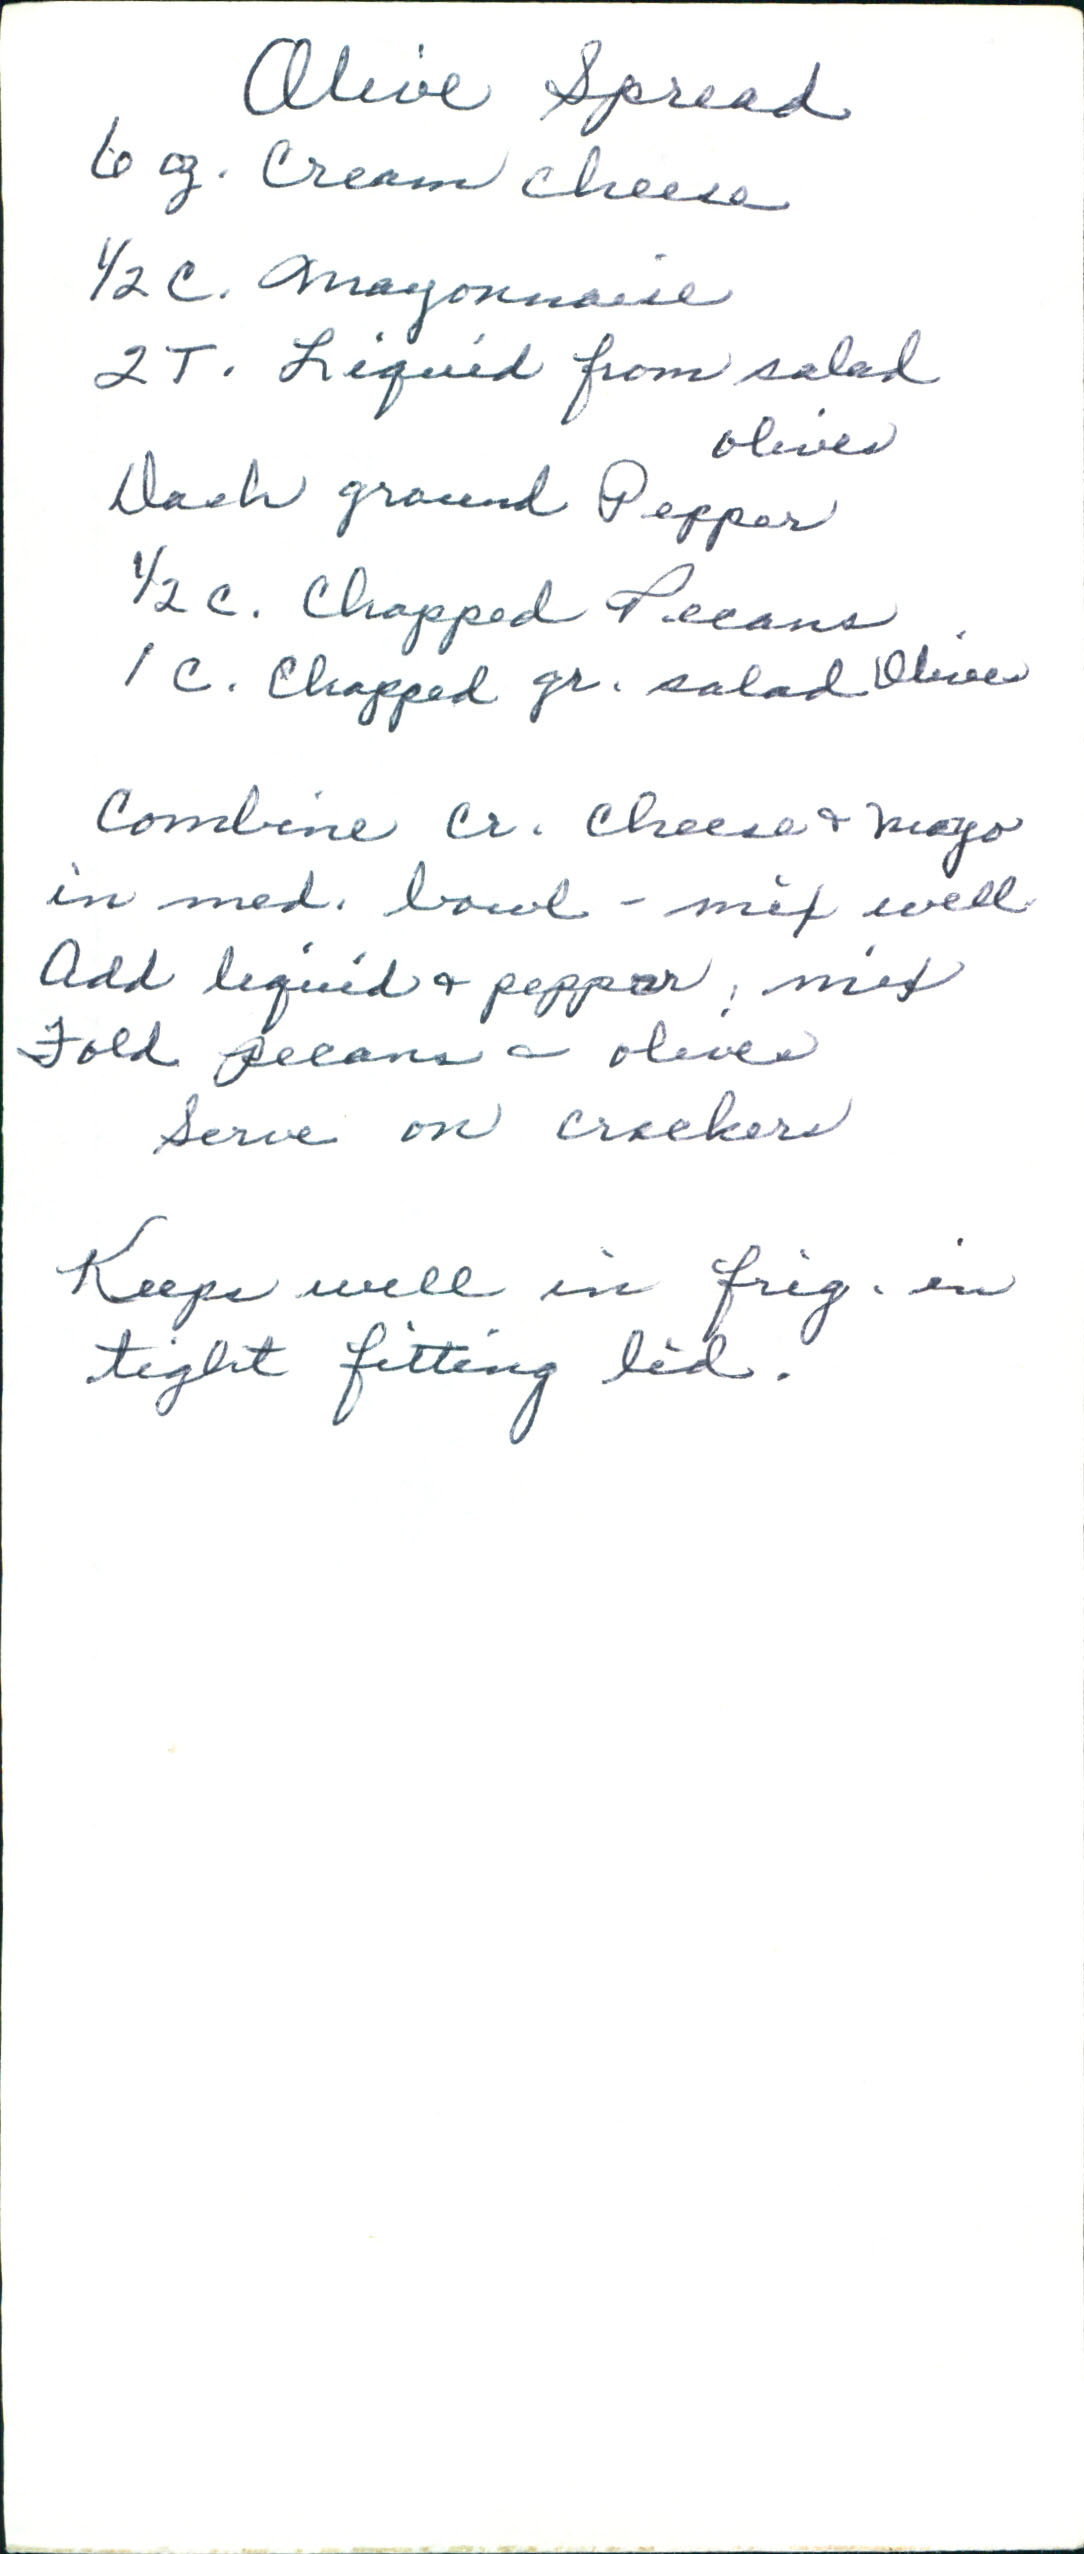 Olive Spread
6 oz. Cream cheese
1/2 C. Mayonnaise
2 T. Liquid from salad
olives
Dash ground Pepper
1/2 c. Chopped Pecans
1 C. Chopped gr. salad Olives
Combine Cr. Cheese & Mayo
in med. bowl - mix well
Add liquid & pepper, mix
Fold pecans & olives
Serve on crackers
Keeps well in frig. in
tight fitting lid.